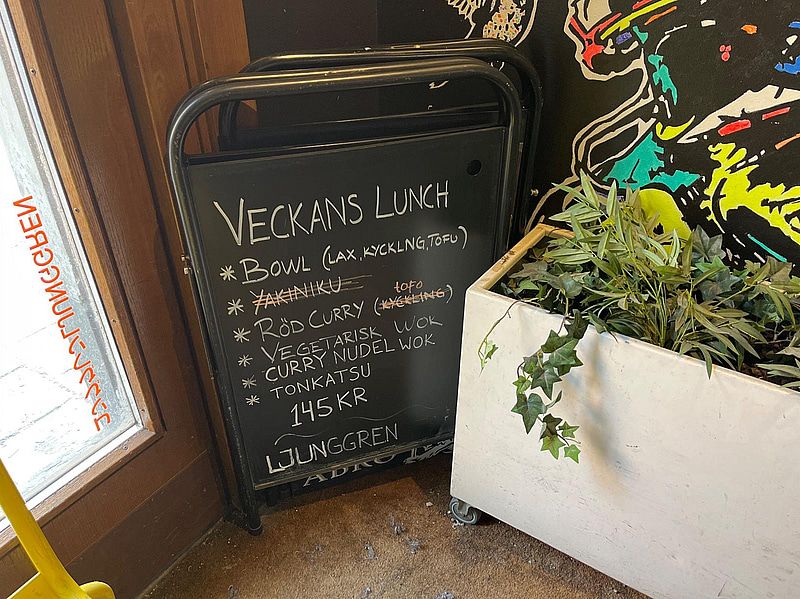 VECKANS LUNCH
* BOWL (LAX, KYCKLNG, TOFU)
* YAKINIKU
tofo
* RÖD CURRY (KYCKLING)
* VEGETARISK WOK
* CURRY NUDEL WOK
* TONKATSU
145 KR
LJUNGGREN
LJUNGGREN